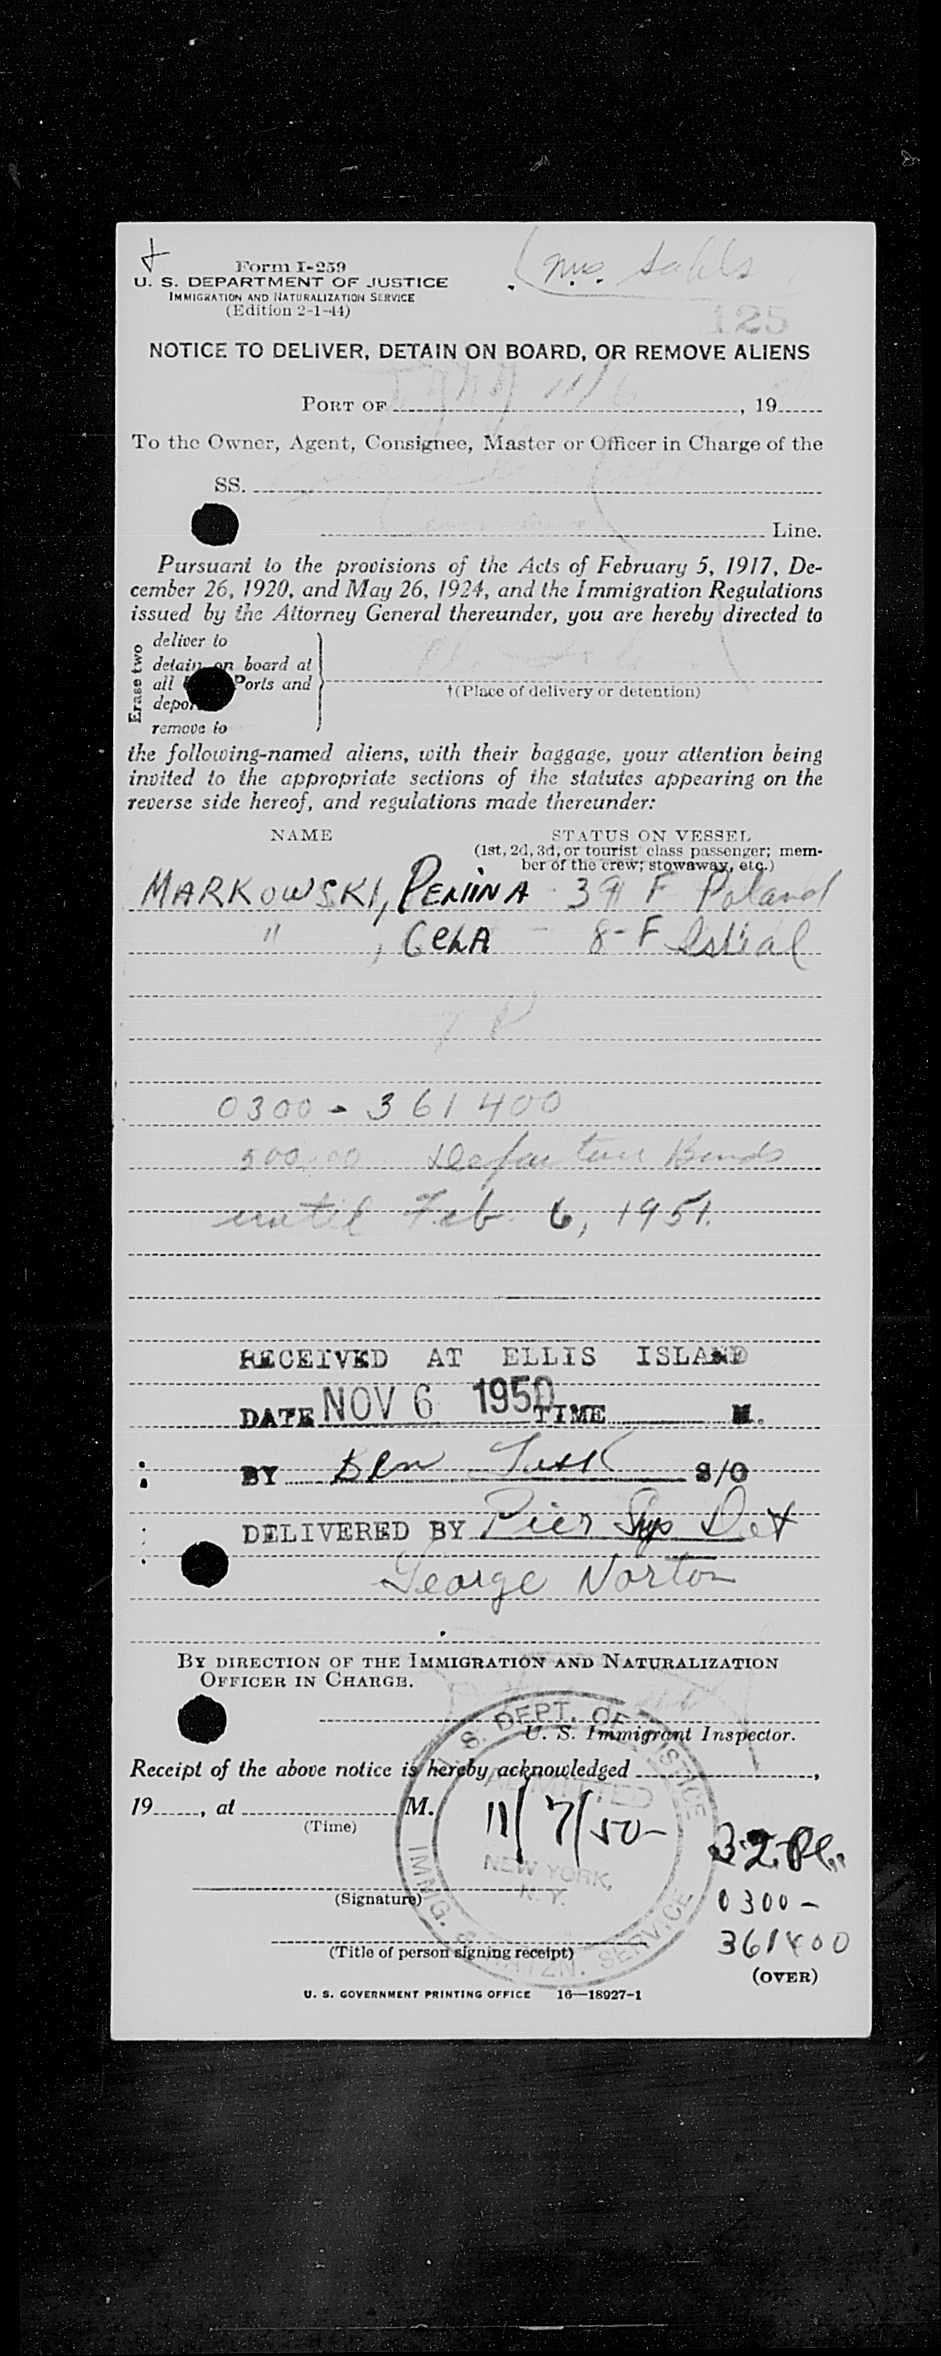 Form I-259
U. S. DEPARTMENT OF JUSTICE
IMMIGRATION AND NATURALIZATION SERVICE
(Edition 2-1-44)
125
NOTICE TO DELIVER, DETAIN ON BOARD, OR REMOVE ALIENS
PORT OF 11/6, 19
To the Owner, Agent, Consignee, Master or Officer in Charge of the
SS.
Line.
Pursuant to the provisions of the Acts of February 5, 1917, De-
cember 26, 1920, and May 26, 1924, and the Immigration Regulations
issued by the Attorney General thereunder, you are hereby directed to
Erase two
deliver to
detain on board at
all Ports and
remove to
†(Place of delivery or detention)
the following-named aliens, with their baggage, your attention being
invited to the appropriate sections of the statutes appearing on the
reverse side hereof, and regulations made thereunder:
NAME STATUS ON VESSEL
(1st, 2d, 3d, or tourist class passenger; mem-
ber of the crew; stowaway, etc.)
MARKOWSKI, PENINA - 39 F Poland
" , GELA - 8-F Isreal
0300 - 361400
500.00 Departure Bonds
until Feb. 6, 1951.
RECEIVED AT ELLIS ISLAND
DATE NOV 6 1950 TIME M.
BY Ben S/O
DELIVERED BY Pier Sup Det
George Norton
BY DIRECTION OF THE IMMIGRATION AND NATURALIZATION
OFFICER IN CHARGE.
U. S. Immigrant Inspector.
Receipt of the above notice is hereby acknowledged ,
19 , at M.
(Time)
(Signature)
(Title of person signing receipt)
U. S. DEPT. OF JUSTICE
ADMITTED
11/7/50-
NEW YORK,
N. Y.
IMMIG. & NATZN. SERVICE
0300 -
361400
(OVER)
U. S. GOVERNMENT PRINTING OFFICE 16—18927-1